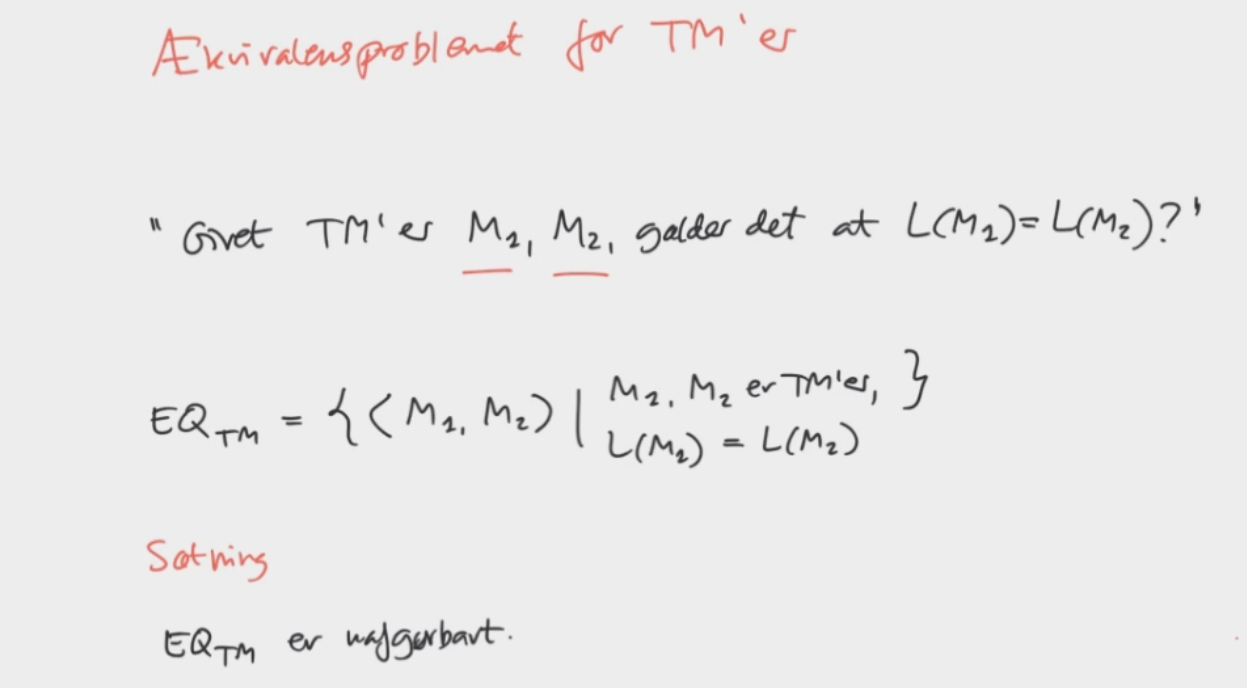 Ækvivalensproblemet for TM'er
"Givet TM'er M₁, M₂, gælder det at L(M₁)=L(M₂)?"
EQ_TM = {⟨M₁, M₂⟩ | M₁, M₂ er TM'er, }
L(M₁) = L(M₂)
Sætning
EQ_TM er uafgørbart.